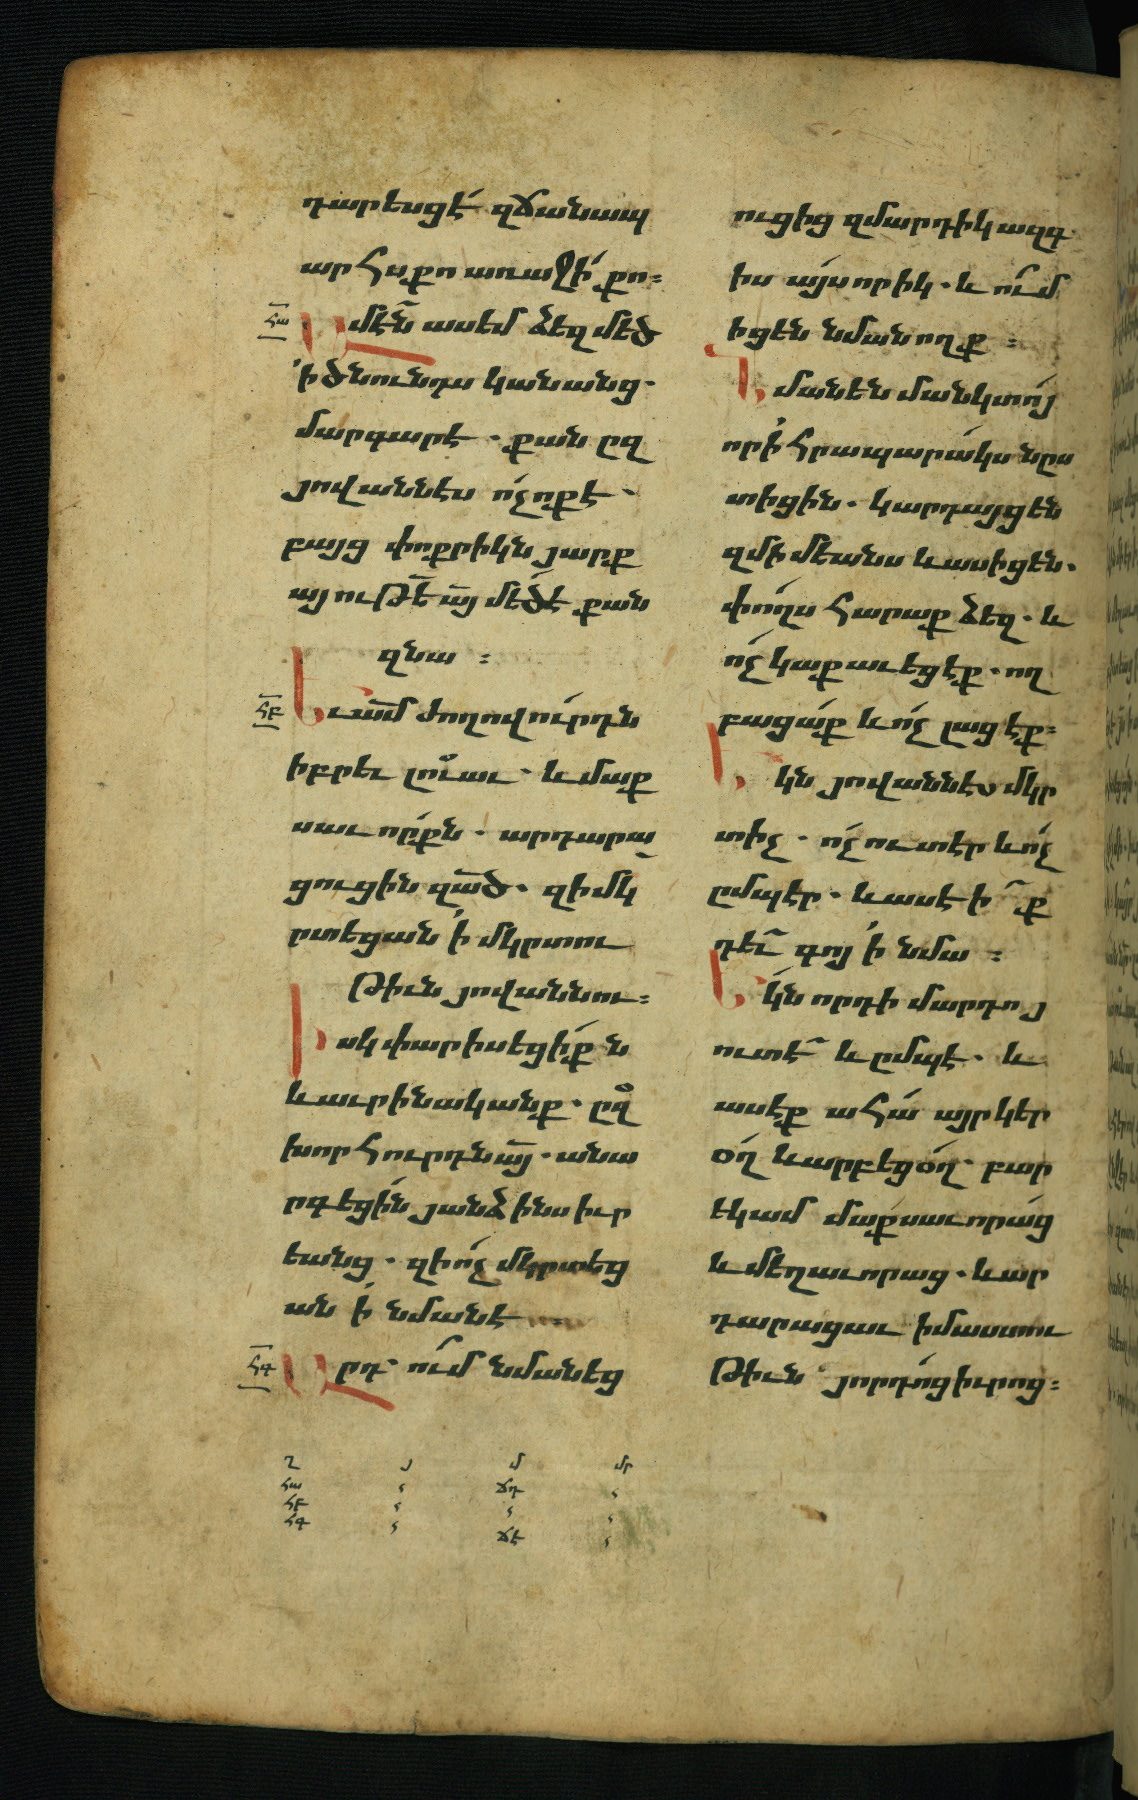 դարեսցէ զճանապ
արհս քո առաջի քո։
ՀԱ
Ամէն ասեմ ձեզ մեծ
ի ծնունդս կանանց.
մարգարէ. քան ըզ
յովաննէս ոչ ոք է.
բայց փոքրիկն յարք
այութէ այ մեծ է քան
զնա։
ՀԲ
Եւ ամ ժողովուրդն
իբրեւ լուաւ. և մաք
սաւորքն. արդարա
ցուցին զած. զի մկ
րտեցան ի մկրտու
թիւն յովաննու։
Իսկ փարիսեցիք ն
և աւրինականք. ըզ
խորհուրդն այ. անա
րգեցին յանձինս իւր
եանց. զի ոչ մկրտեց
ան ի նմանէ։
ՀԳ
Արդ՝ ում նմանեց
ուցից զմարդիկ ազգ
իս այսորիկ. և ում
իցեն նման ողք։
Նմանեն մանկտոյ
որ ի հրապարակս նըս
տիցին. կարդայցեն
զմիմեանս և ասիցեն.
փողս հարաք ձեզ. և
ոչ կաքաւեցէք. ող
բացաք և ոչ լացէք։
Եկն յովաննէս մկր
տիչ. ոչ ուտէր և ոչ
ըմպէր. և ասէիք
դեւ գոյ ի նմա։
Եկն որդի մարդոյ
ուտէ և ըմպէ. և
ասէք ահա այր կեր
օղ և արբեցօղ. բար
եկամ մաքսաւորաց
և մեղաւորաց. և ար
դարացաւ իմաստու
թիւն՝ յորդոց իւրոց։
Ղ Յ Մ ՄՐ
ՀԱ ՃԴ
ՀԲ
ՀԳ ՃԷ